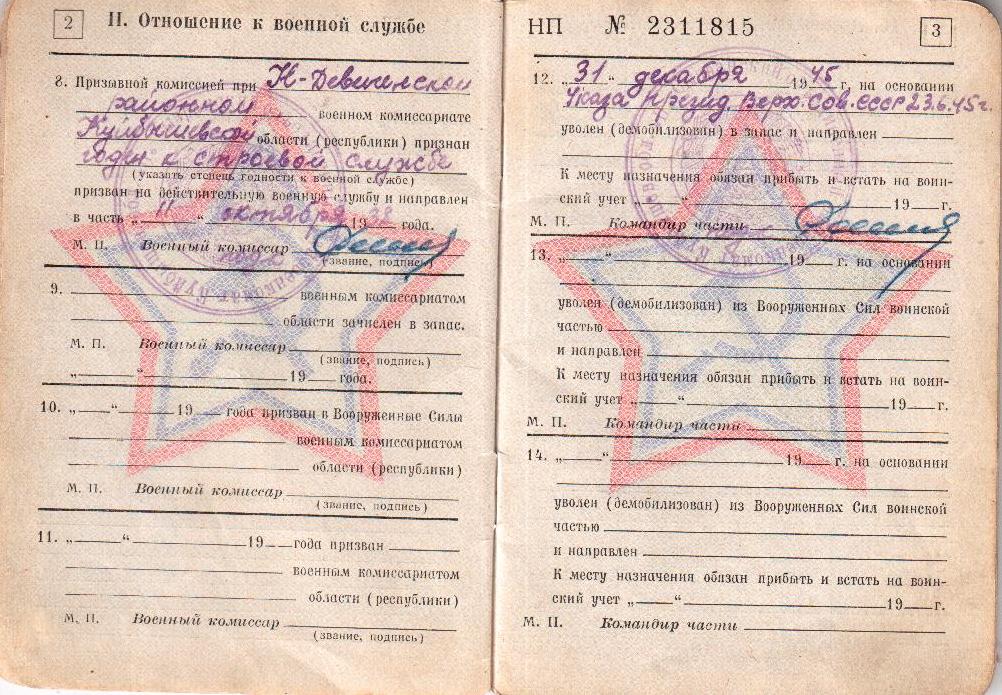 2
II. Отношение к военной службе
8. Призывной комиссией при К-Девиченской
районном военном комиссариате
Куйбышевской области (республики) признан
годен к строевой службе
(указать степень годности к военной службе)
призван на действительную военную службу и направлен
в часть „11“ октября 1938 года.
М. П. Военный комиссар
(звание, подпись)
9. военным комиссариатом
области зачислен в запас.
М. П. Военный комиссар
(звание, подпись)
„ “ 19 года.
10. „ “ 19 года призван в Вооруженные Силы
военным комиссариатом
области (республики)
М. П. Военный комиссар
(звание, подпись)
11. „ “ 19 года призван
военным комиссариатом
области (республики)
М. П. Военный комиссар
(звание, подпись)
НП № 2311815
3
12. „31“ декабря 1945 г. на основании
Указа Презид. Верх. Сов. СССР 23.6.45г.
уволен (демобилизован) в запас и направлен
К месту назначения обязан прибыть и встать на воин-
ский учет „ “ 19 г.
М. П. Командир части
13. „ “ 19 г. на основании
уволен (демобилизован) из Вооруженных Сил воинской
частью
и направлен
К месту назначения обязан прибыть и встать на воин-
ский учет „ “ 19 г.
М. П. Командир части
14. „ “ 19 г. на основании
уволен (демобилизован) из Вооруженных Сил воинской
частью
и направлен
К месту назначения обязан прибыть и встать на воин-
ский учет „ “ 19 г.
М. П. Командир части